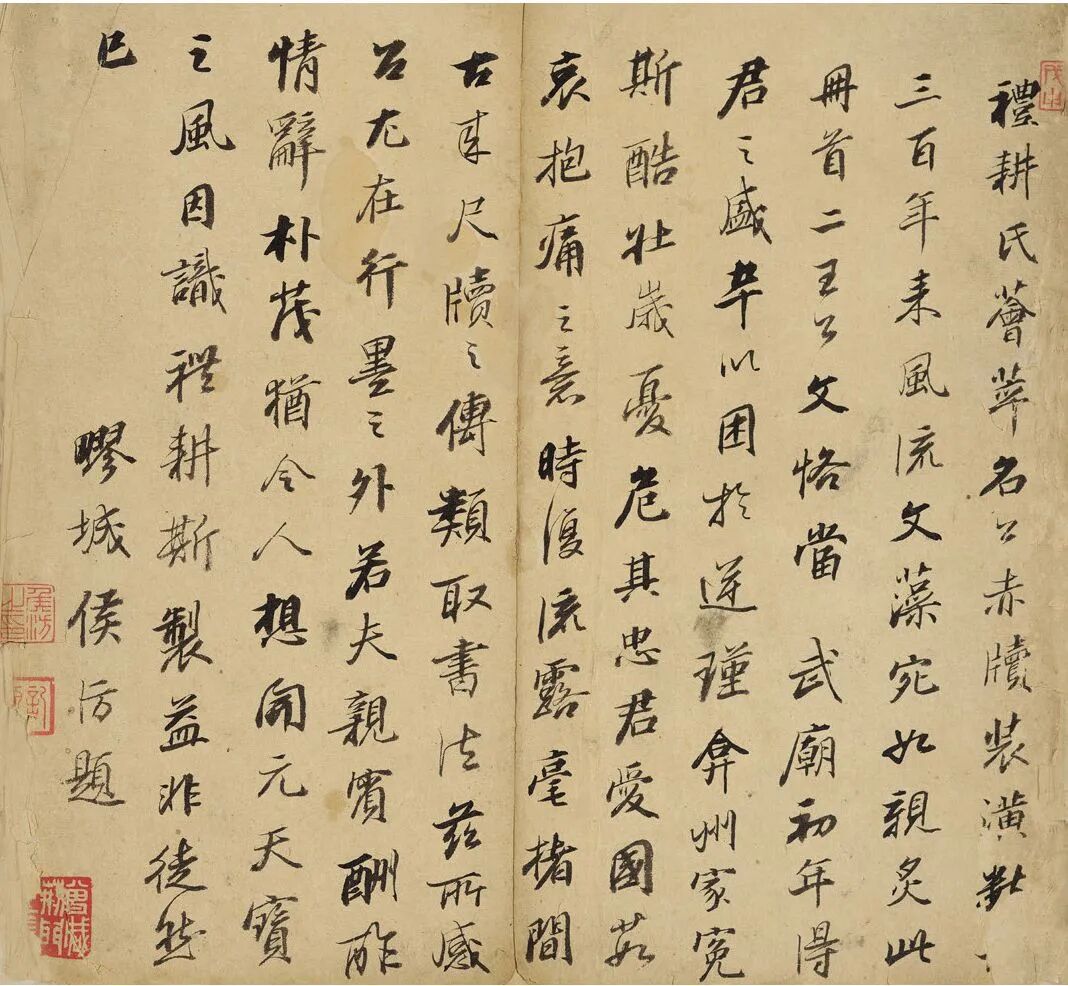 禮耕氏薈萃名公赤牘裝潢
三百年來風流文藻宛如親炙此
冊首二王公文恪當 武廟初年得
君之盛卒以困於逆瑾弇州家冤
斯酷壯歲憂危其忠君愛國茹
哀抱痛之意時復流露毫楮間
古來尺牘之傳類取書法茲所感
召尤在行墨之外若夫親賓酬酢
情辭朴茂猶令人想開元天寶
之風因識禮耕斯製益非徒然
已
疁城侯汸題
侯汸之印